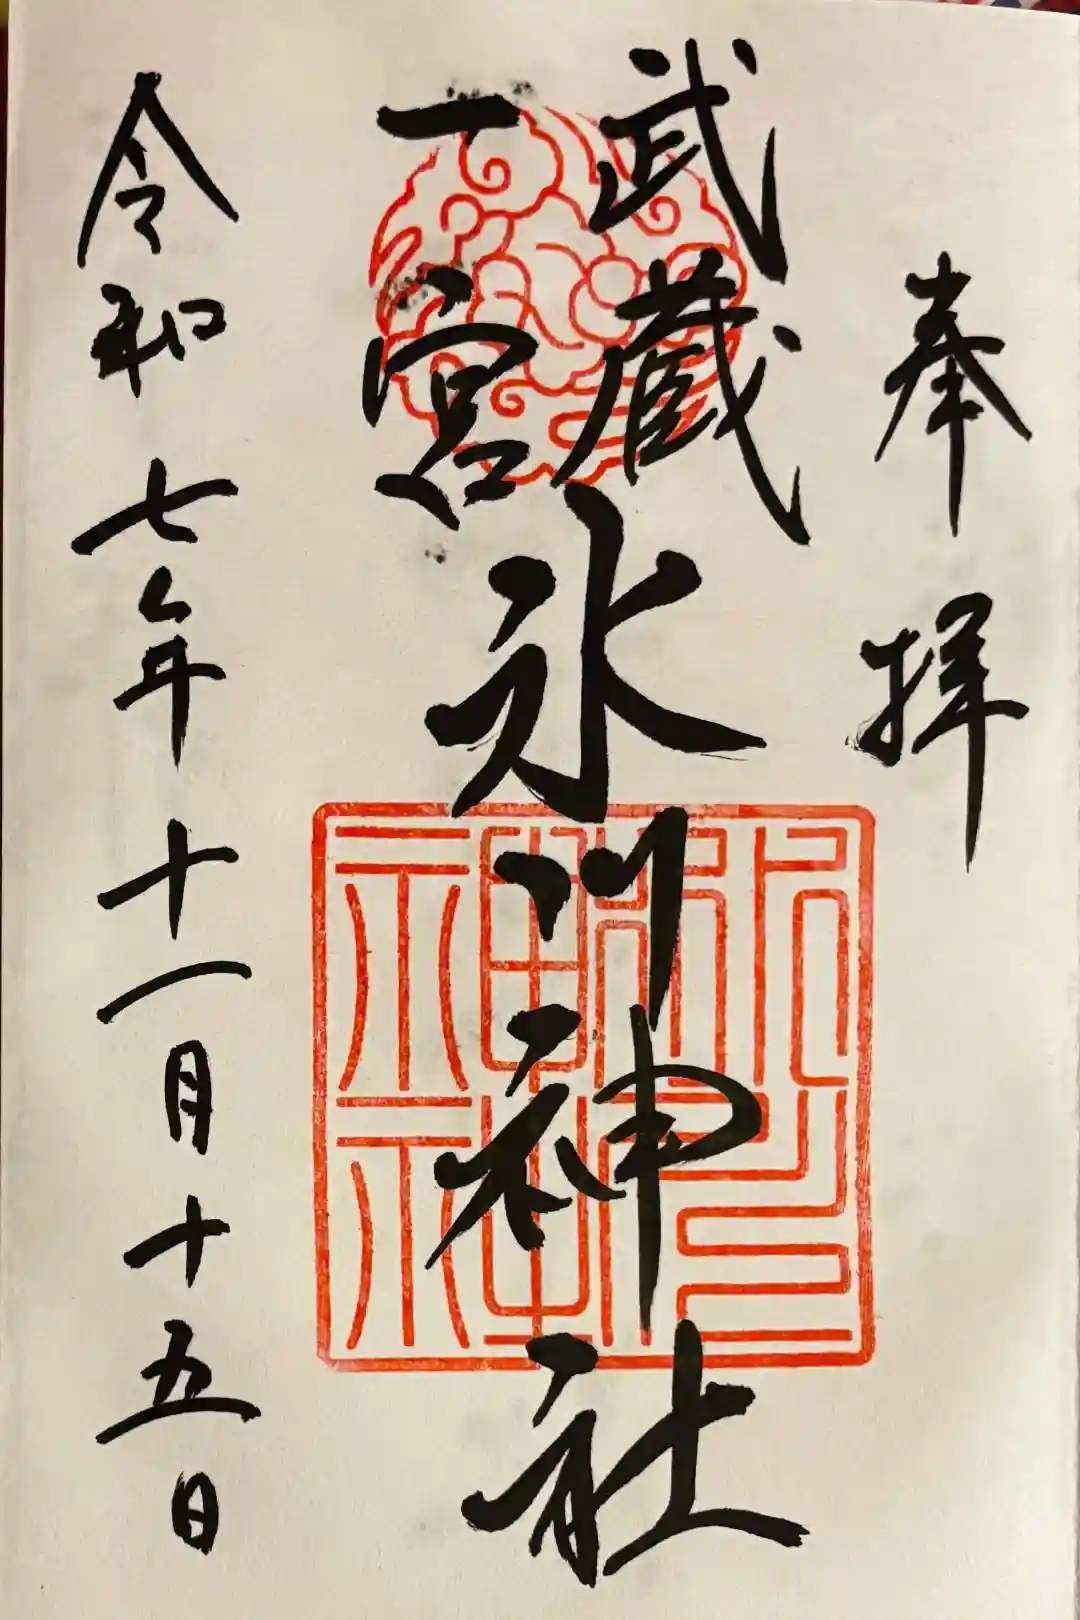 奉拝
武蔵
一宮
氷川神社
令和七年十一月十五日